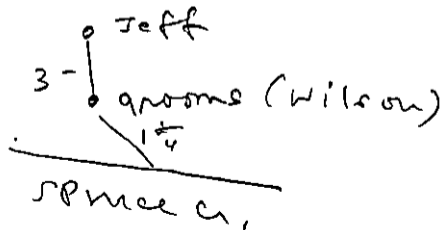 Jeff
3 -
grooms (Wilson)
1 1/4
spruce Cr.